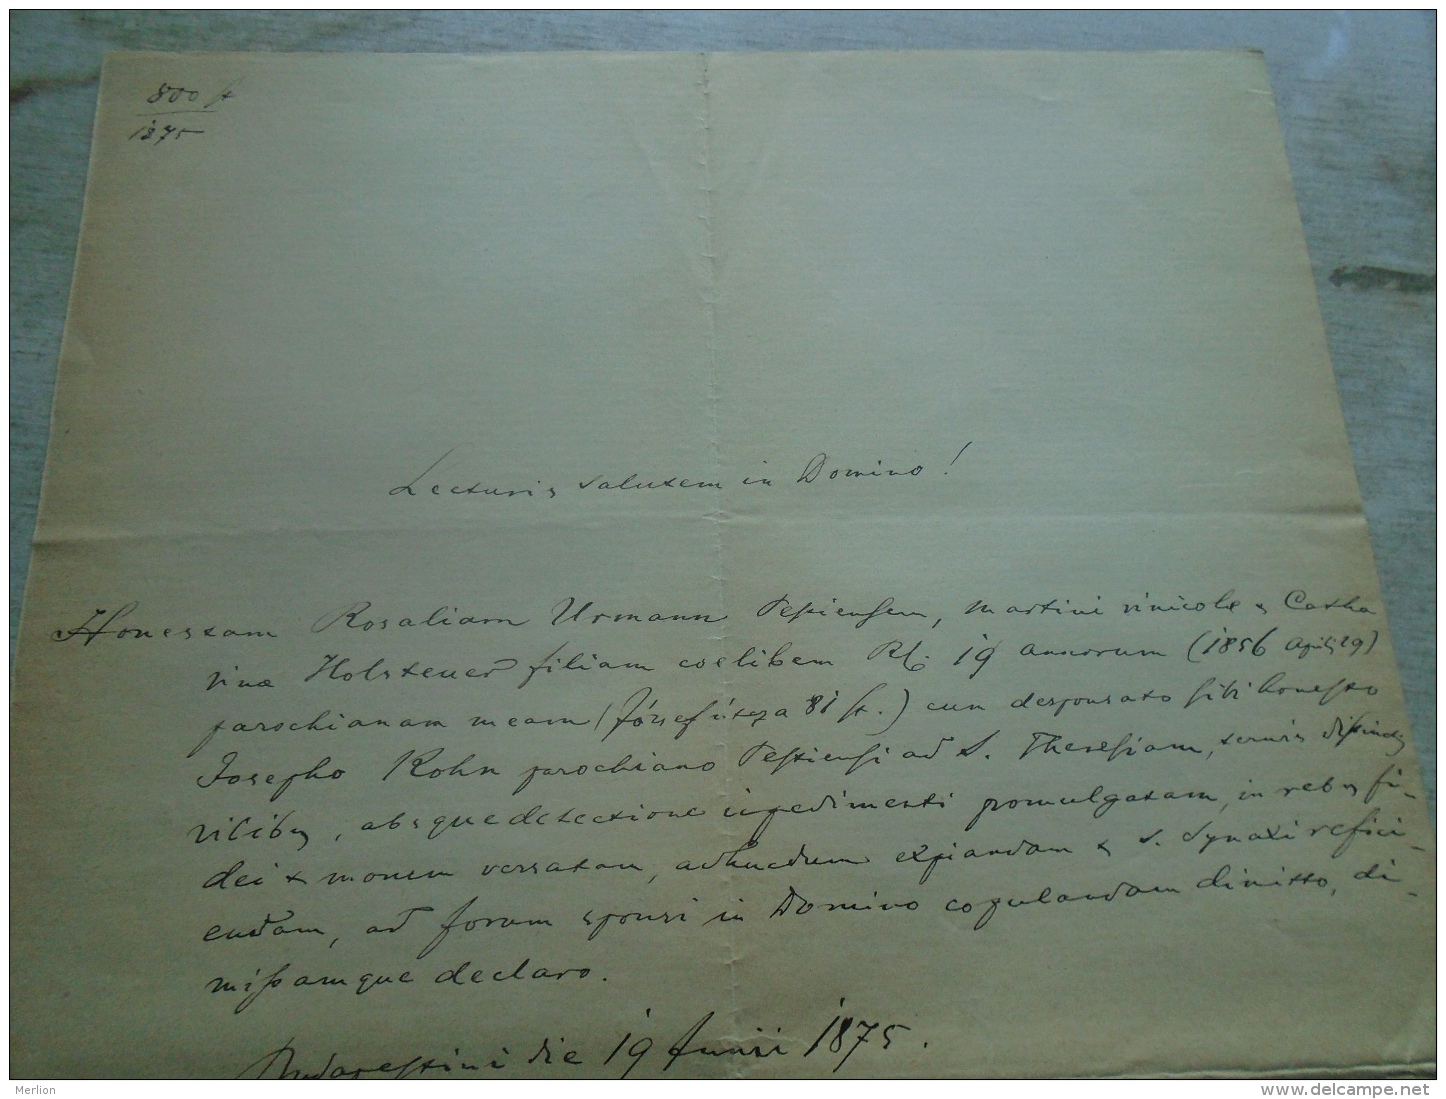 800
1875
Lecturis salutem in Domino!
Honestam Rosaliam Urmann Pestiensem, Martini vinicolae & Catha
rinae Holsteuer filiam coelibem 19 annorum (1856 April 29)
parochianam meam (József utcza 81 sz.) cum desponsato sibi honesto
Josepho Kohn parochiano Pestiensi ad S. Theresiam, ternis distinctis
vicibus, absque detectione impedimenti promulgatam, in rebus fi-
dei & morum versatam, adhucdum expiandam & s. Synaxi refici-
endam, ad forum sponsi in Domino copulandam dimitto, di-
missamque declaro.
Budapestini die 19 Junii 1875.
Merlion
www.delcampe.net